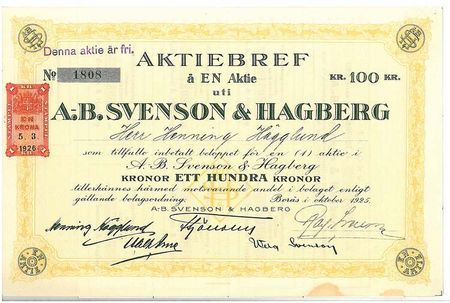 AKTIEBREF
Denna aktie är fri.
No 1808
à EN Aktie
KR. 100 KR.
uti
A:B. SVENSON & HAGBERG
Herr Henning Hägglund
EN
KRONA
5. 3
1926
som tillfullo inbetalt beloppet för en (1) aktie i
A-B. Svenson & Hagberg
KRONOR ETT HUNDRA KRONOR
tillerkännes härmed motsvarande andel i bolaget enligt
gällande bolagsordning. Borås i oktober 1925.
A.-B. SVENSON & HAGBERG
Henning Hägglund